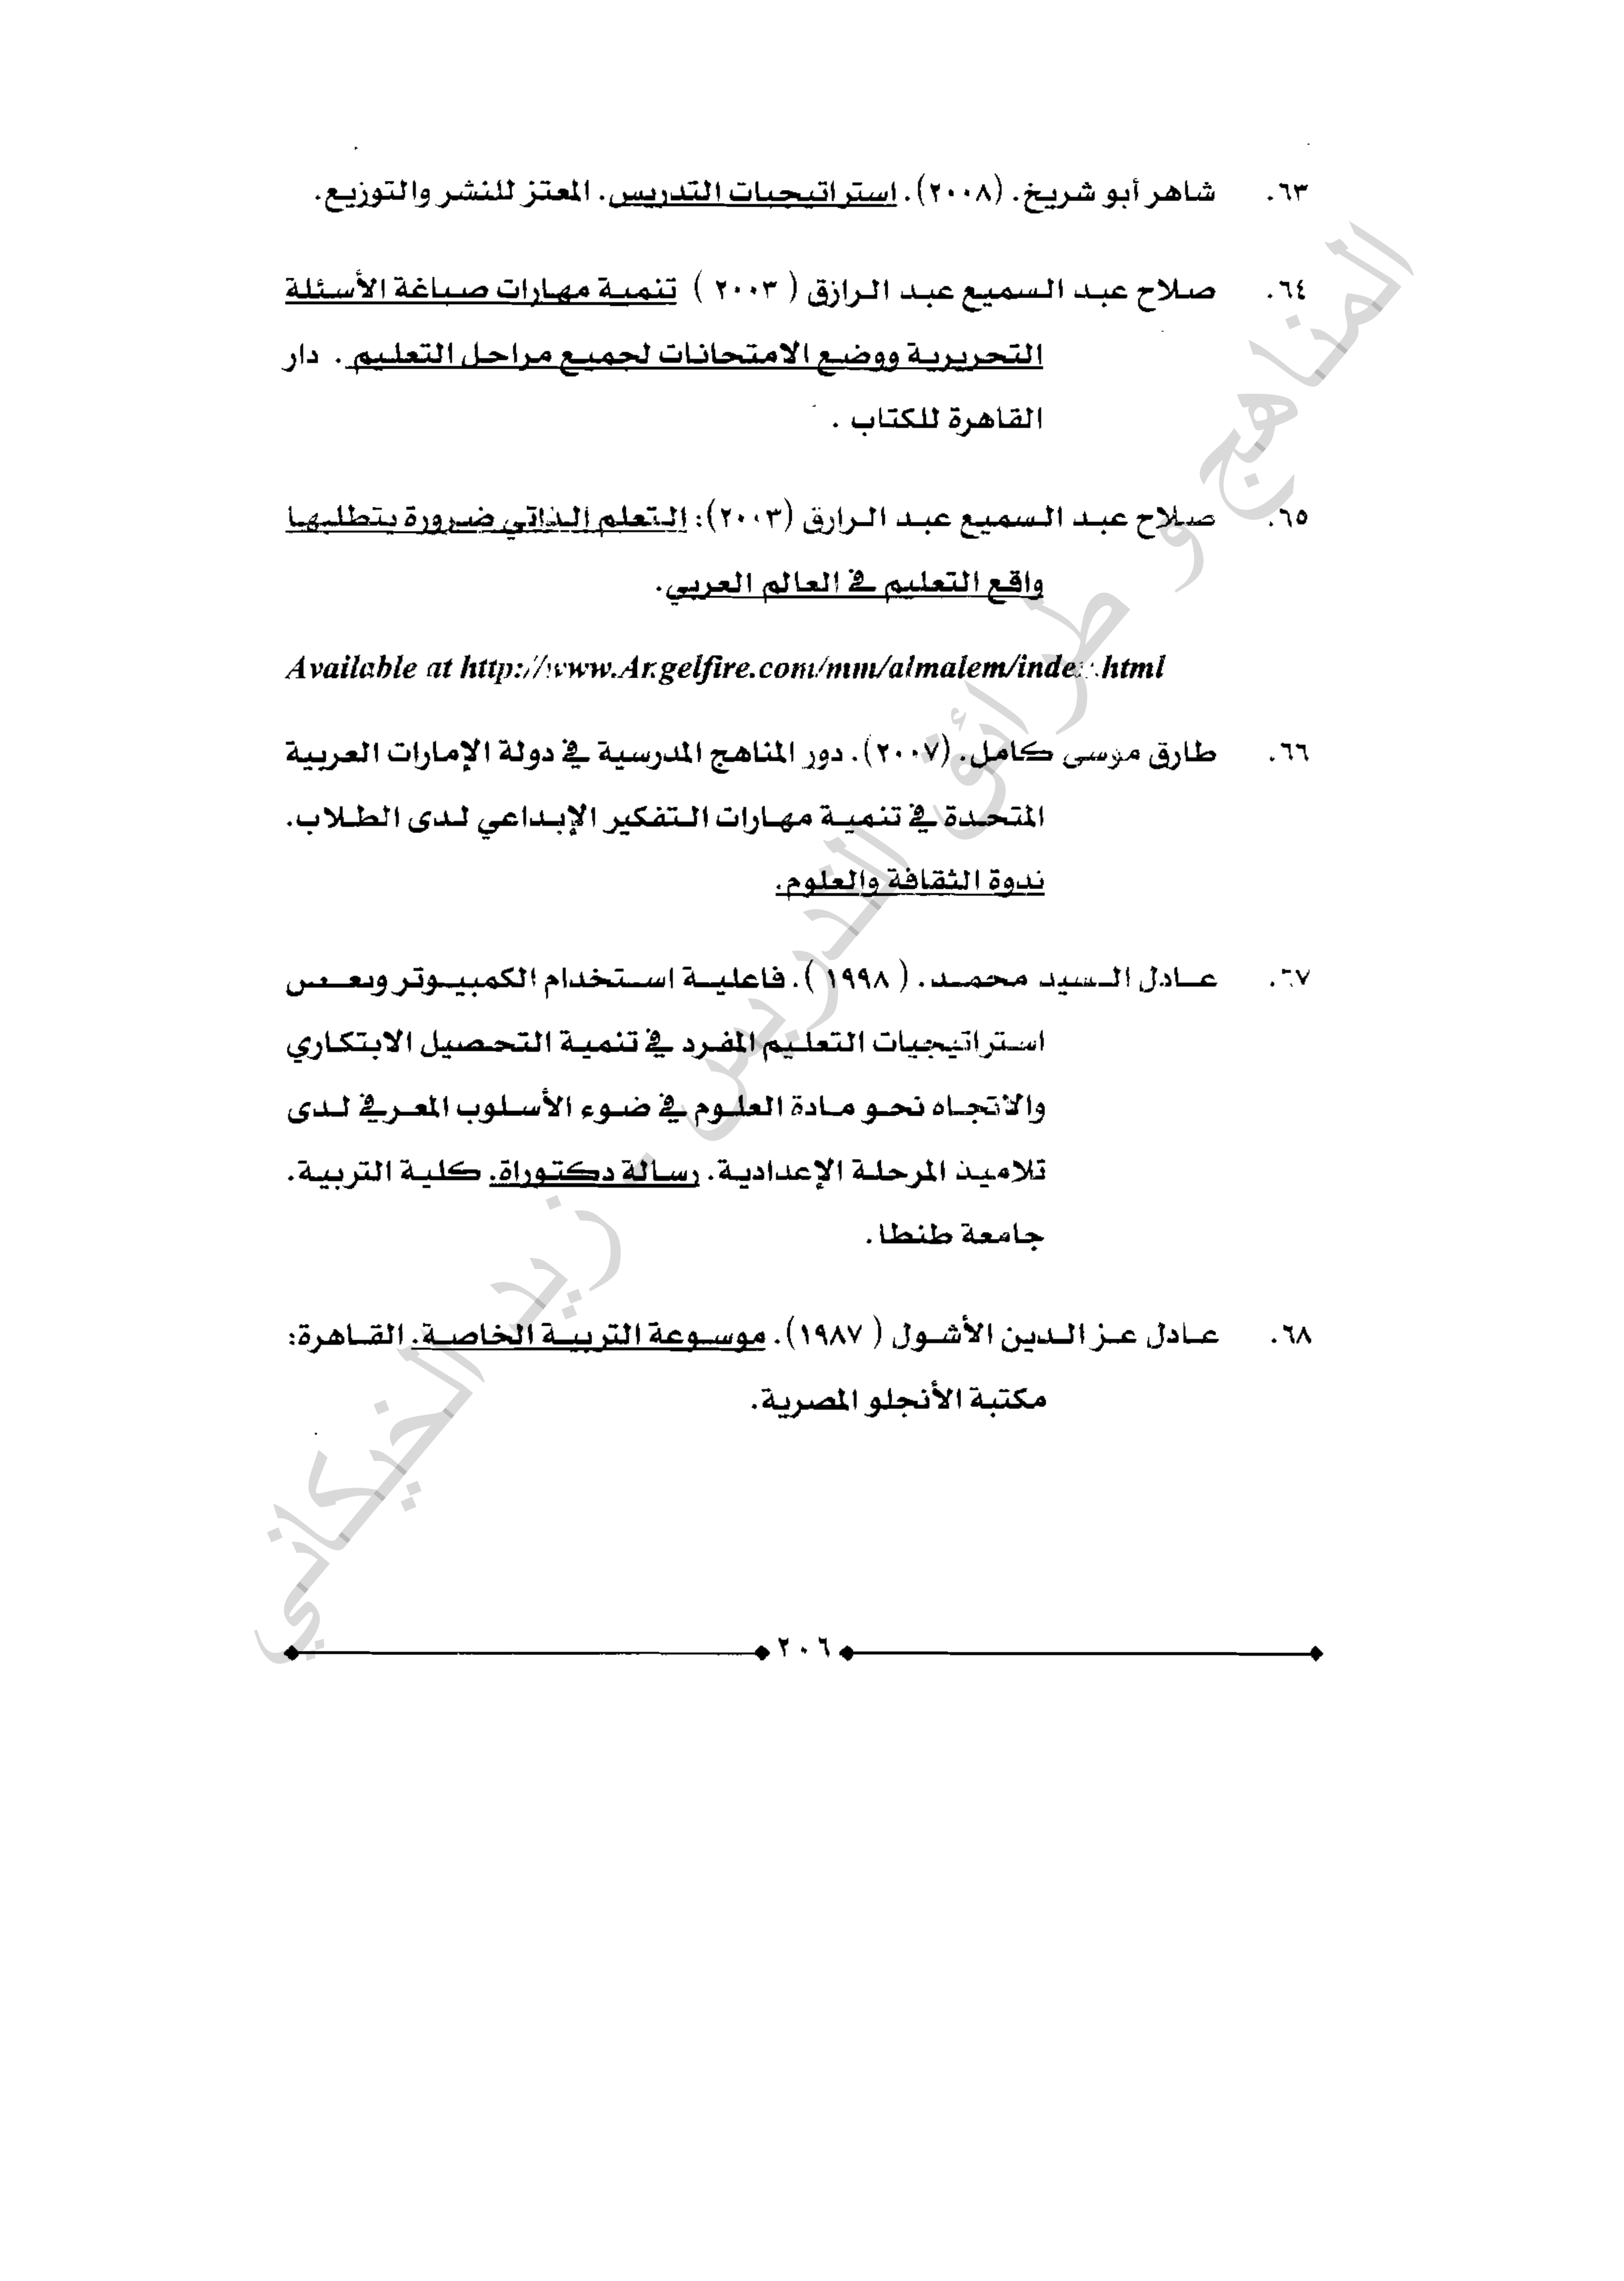 ٦٣. شاهر أبو شريخ. (٢٠٠٨). استراتيجيات التدريس. المعتز للنشر والتوزيع.
٦٤. صلاح عبد السميع عبد الرازق ( ٢٠٠٣ ) تنمية مهارات صياغة الأسئلة
التحريرية ووضع الامتحانات لجميع مراحل التعليم . دار
القاهرة للكتاب .
٦٥. صلاح عبد السميع عبد الرازق (٢٠٠٣): التعلم الذاتي ضرورة يتطلبها
واقع التعليم في العالم العربي.
Available at http://www.Angelfire.com/mm/almalem/index.html
٦٦. طارق موسى كامل. (٢٠٠٧). دور المناهج المدرسية في دولة الإمارات العربية
المتحدة في تنمية مهارات التفكير الإبداعي لدى الطلاب.
ندوة الثقافة والعلوم.
٦٧. عادل السيد محمد. ( ١٩٩٨ ). فاعلية استخدام الكمبيوتر وبعض
استراتيجيات التعليم المفرد في تنمية التحصيل الابتكاري
والاتجاه نحو مادة العلوم في ضوء الأسلوب المعرفي لدى
تلاميذ المرحلة الإعدادية. رسالة دكتوراة. كلية التربية.
جامعة طنطا.
٦٨. عادل عز الدين الأشول ( ١٩٨٧). موسوعة التربية الخاصة. القاهرة:
مكتبة الأنجلو المصرية.
٢٠٦
المناهج و طرائق التدريس - زيد الخيكاني